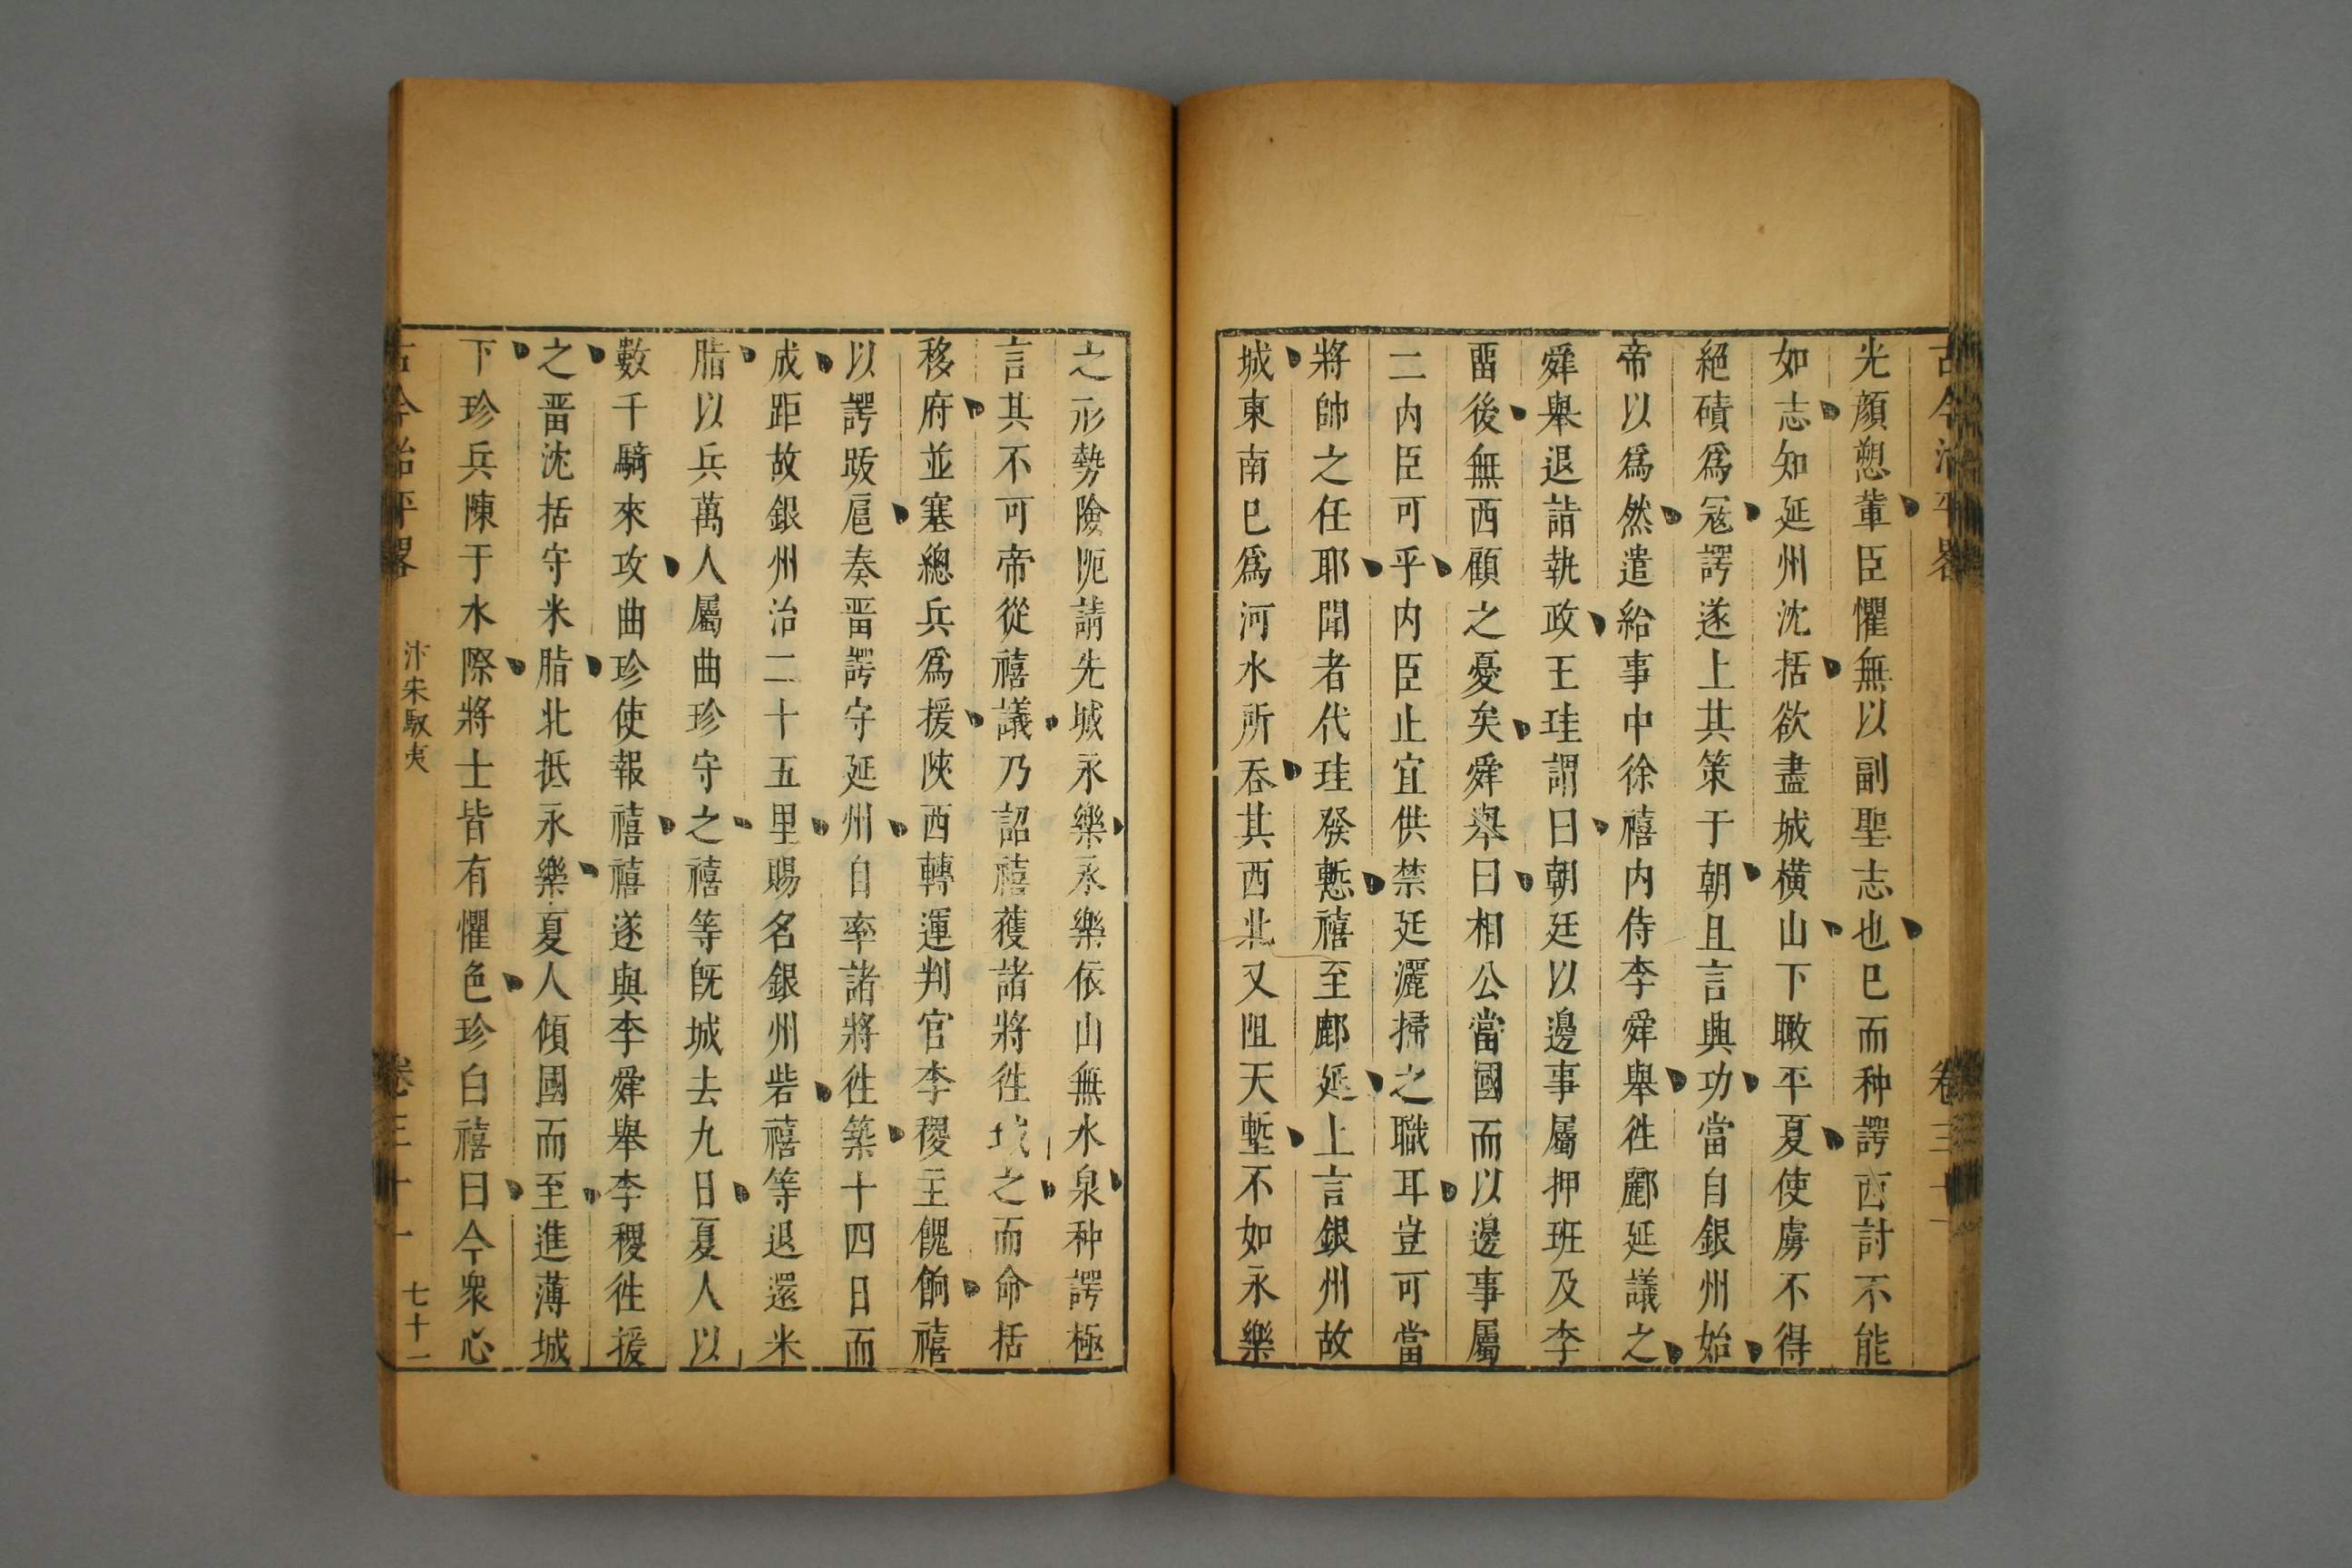 古今治平畧 卷三十一
光顔愬輩臣懼無以副聖志也巳而种諤西討不能
如志知延州沈括欲盡城橫山下瞰平夏使虜不得
絕磧爲冦諤遂上其策于朝且言興功當自銀州始
帝以爲然遣給事中徐禧内侍李舜舉徃鄜延議之
舜舉退詣執政王珪謂曰朝廷以邊事屬押班及李
畱後無西顧之憂矣舜舉曰相公當國而以邊事屬
二内臣可乎内臣止宜供禁廷灑掃之職耳豈可當
將帥之任耶聞者代珪發慙禧至鄜延上言銀州故
城東南巳爲河水所吞其西北又阻天塹不如永樂
之形勢險阨請先城永樂永樂依山無水泉种諤極
言其不可帝從禧議乃詔禧䕶諸將徃城之而命括
移府並塞總兵爲援陝西轉運判官李稷主餽餉禧
以諤跋扈奏畱諤守延州自率諸將徃築十四日而
成距故銀州治二十五里賜名銀州砦禧等退還米
脂以兵萬人屬曲珍守之禧等旣城去九日夏人以
數千騎來攻曲珍使報禧禧遂與李舜舉李稷徃援
之畱沈括守米脂北抵永樂夏人傾國而至進薄城
下珍兵陳于水際將士皆有懼色珍白禧曰今衆心
古今治平畧 汴宋馭夷 卷三十一 七十一